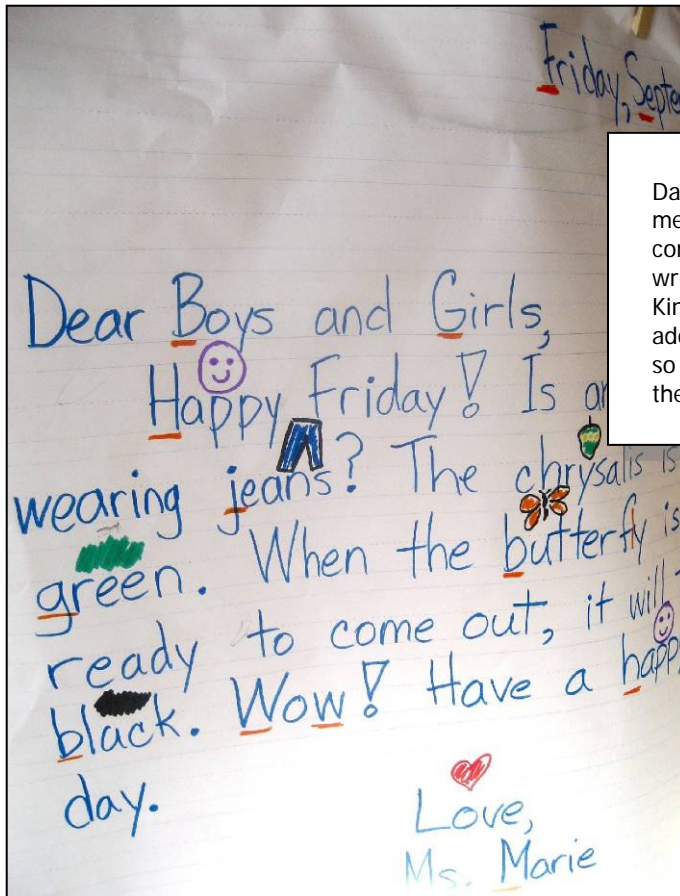 Friday,
Dear Boys and Girls,
Happy Friday! Is
wearing jeans? The chrysalis is
green. When the butterfly is
ready to come out, it will
black. Wow! Have a
day.
Love,
Ms. Marie
so